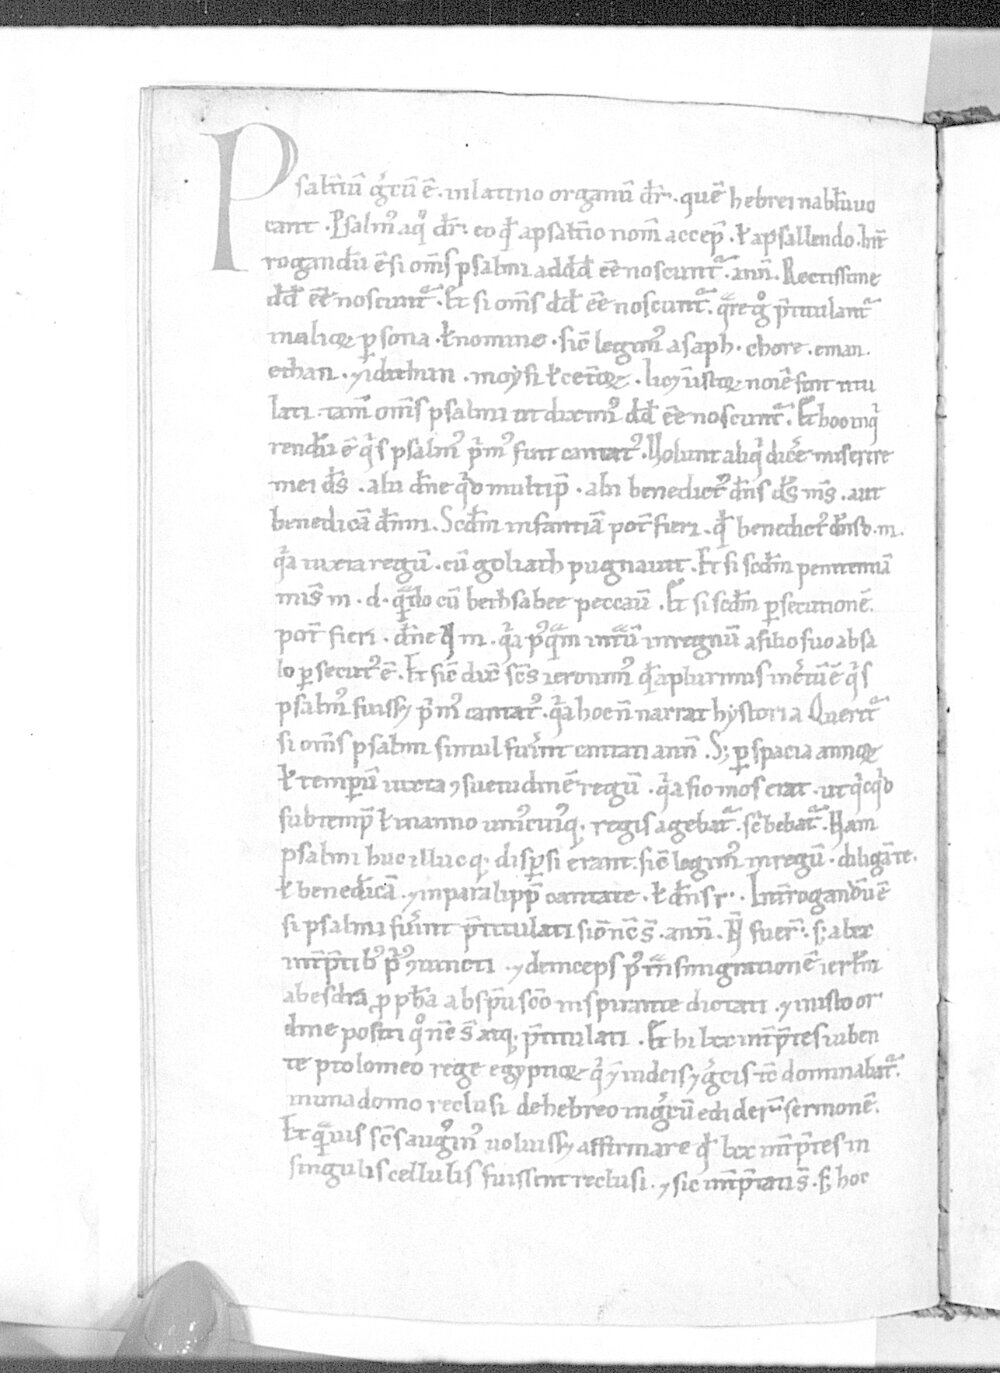 Psaltiũ grcũ ẽ. in latino organũ dr̃. quẽ hebrei nablũ uo
cant. Psalm᷒ aqͦ dr̃. eo qđ apsaltio nom̃ accep̃. ł apsallendo. Int̃
rogandũ ẽ si om̃s psalmi addđđ eẽ noscunt᷑. an ñ. Rectissime
dđ eẽ noscunt᷑. Et si om̃s dđ eẽ noscunt᷑. qͣre gͦ p̃titulant᷑
in alioꝝ ꝑsona. ł nomine. sic̃ legim᷒ asaph. chore. eman.
ethan. ⁊ idithun. moysi ł cet̃oꝝ. hic ⁊ istoꝝ noiẽ sint titu
lati. tam̃ om̃s psalmi ut dixim᷒ dđ eẽ noscunt᷑. Et hoc inqͥ
rendũ ẽ qͥs psalm᷒ pͥm᷒ fuit cantat᷒. Uolunt aliqͥ dic̃e miserere
mei d̃s. alii dñe qͥd multip̃. alii benedict᷒ dñs d̃s m̃s. aut
benedicã dñm. Scdm̃ infantiã pot̃ fieri. qđ benedict᷒ dñs đ. m.
qͥa iuxta regũ. cũ goliath pugnauit. Et si scdm̃ penitentiã
mis̃ m. d. qͣñdo cũ bethsabee peccauit. Et si scdm̃ ꝑsecutionẽ.
pot̃ fieri. dñe q̃ m. qͥa pͦqͣm int̃ũ in regnũ a filio suo absa
lo ꝑsecut᷒ ẽ. Et sic̃ dix̃ sc̃s ieronim᷒ qđ aplurimis inc̃tũ ẽ qͥs
psalm᷒ fuisset pͥm᷒ cantat᷒. qͥa hoc ñ narrat hystoria. Querit᷑
si om̃s psalmi simul fueꝛint cantati an ñ. S; ꝑ spacia annoꝝ
ł tempũ iuxta ꝯsuetudinẽ regũ. qͥa sic mos erat. ut qͥcqͥd
sub temp̃ ł in anno uni᷒cui᷒q;. regis agebat᷑. sc̃bebat᷑. Nam
psalmi huc illuc q;. dispersi erant. sic̃ legim᷒ in regũ. diligã te.
ł benedicã. ⁊ in paralipp̃ cantate. ł dñs r̃. Int̃rogandũ ẽ
si psalmi fueꝛint p̃titulati sic̃ nc̃ s̃. an ñ. Ñ fueꝛ̃. s; a lxx
int̃p̃tib᷒ pͥ᷒ ꝯiuncti. ⁊ deinceps pͦ t̃nsmigrationẽ ierl̃m
ab esdra p̃pħa ab spũ sc̃o inspirante dictati. ⁊ in isto or
dine positi qͦ nc̃ s̃ atq;. p̃titulati. Et hi lxx int̃p̃tes iuben
te ptolomeo rege egyptioꝝ qͥ ⁊ iudeis ⁊ grcis tc̃ dominabat᷑.
in una domo reclusi de hebreo in grcũ edider̃ sermonẽ.
Et qͣuis sc̃s augͦtin᷒ uoluisset affirmare qđ lxx int̃p̃tes in
singulis cellulis fuissent reclusi. ⁊ sic int̃p̃tati s̃. S; hoc